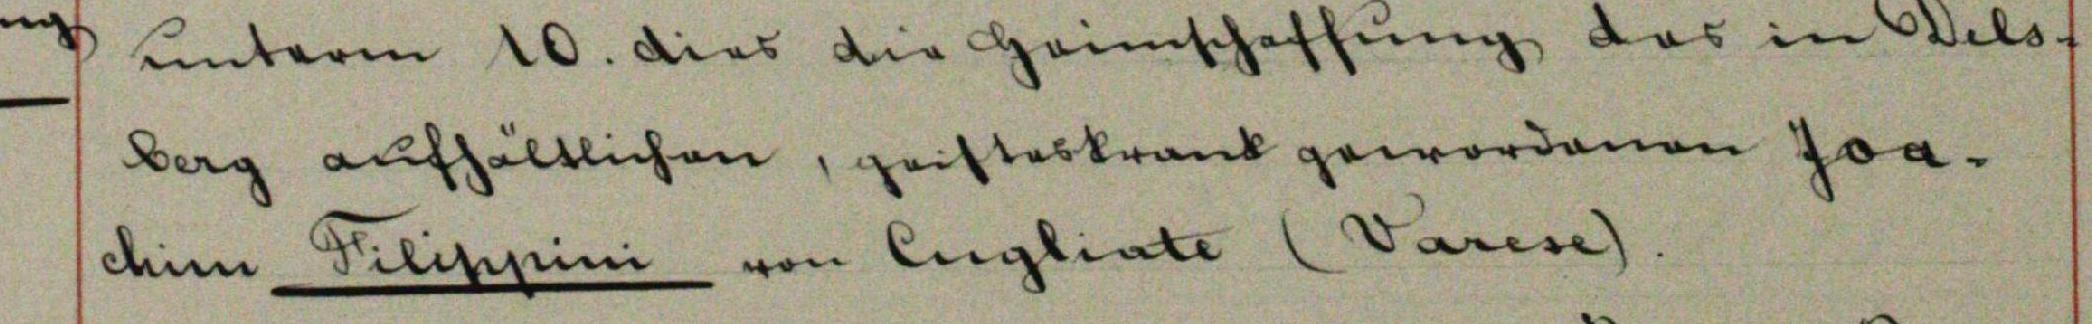 unterm 10. dies die Heimschaffung des in Dels-
berg aufhältlichen, geisteskrank gewordenen Joa-
chim Filippini von Cugliate (Varese).